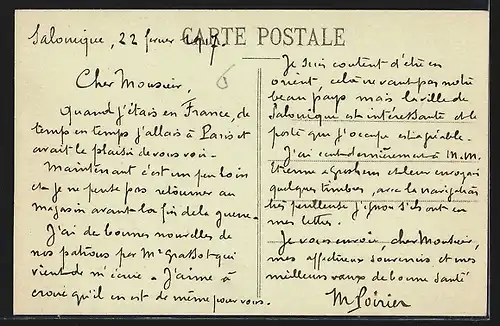 CARTE POSTALE
Salonique, 22 février 1917.
Cher Monsieur,
Quand j'étais en France, de
temps en temps j'allais à Paris et
avait le plaisir de vous voir.
Maintenant c'est un peu loin
et je ne pense pas retourner au
magasin avant la fin de la guerre.
J'ai de bonnes nouvelles de
nos patrons par Mr Grassot qui
vient de m'écrire. J'aime à
croire qu'il en est de même pour vous.
Je suis content d'être en
orient, cela ne vaut pas notre
beau pays mais la ville de
Salonique est intéressante et le
poste que j'occupe est agréable.
J'ai écrit dernièrement à M.M.
Etienne et leur envoyais
quelques timbres, avec la navigation
très périlleuse j'ignore s'ils ont eu
mes lettres.
Je vous envoie, cher Monsieur,
mes affectueux souvenirs et mes
meilleurs vœux de bonne santé
M Poirier